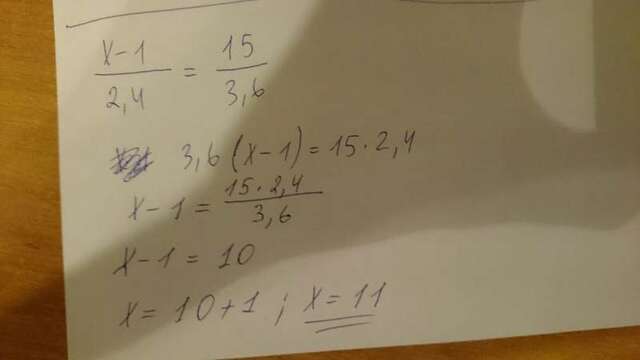 x-1/2,4 = 15/3,6
3,6(x-1)=15·2,4
x-1=15·2,4/3,6
x-1=10
x=10+1; x=11